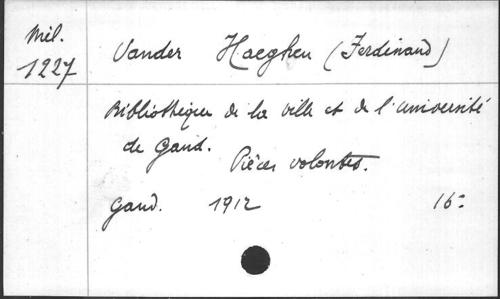 Mil.
1227
Vander Haeghen (Ferdinand)
Bibliothèque de la ville et de l'université
de Gand.
Pièces volantes.
Gand. 1912 16=